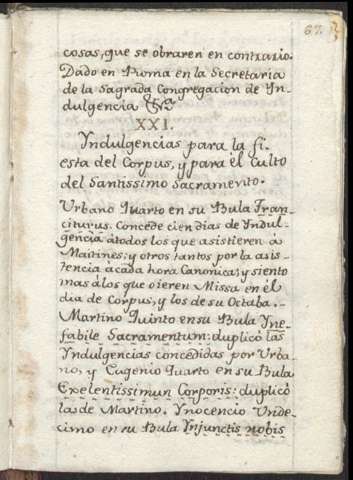 67.
cosas, que se obraren en contrario.
Dado en Roma en la Secretaria
de la Sagrada Congregacion de In-
dulgencia &ra
XXI.
Yndulgencias para la fi-
esta del Corpus, y para el Culto
del Santissimo Sacramento.
Urbano Quarto en su Bula Tran-
citurus. Concede cien dias de Indul-
gencia àtodos los que asistieren a
Maitines; y otros tantos por la asis-
tencia acada hora Canonica; y siento
mas àlos que oieren Missa en el
dia de Corpus, y los de su Octaba.
Martino Quinto en su Bula Yne-
fabile Sacramentum: duplicò las
Yndulgencias concedidas por Urba-
no, y Eugenio Quarto en su Bula
Exelentissimun Corporis: duplicò
las de Martino. Ynocencio Unde-
cimo en su Bula Ynjunctis nobis